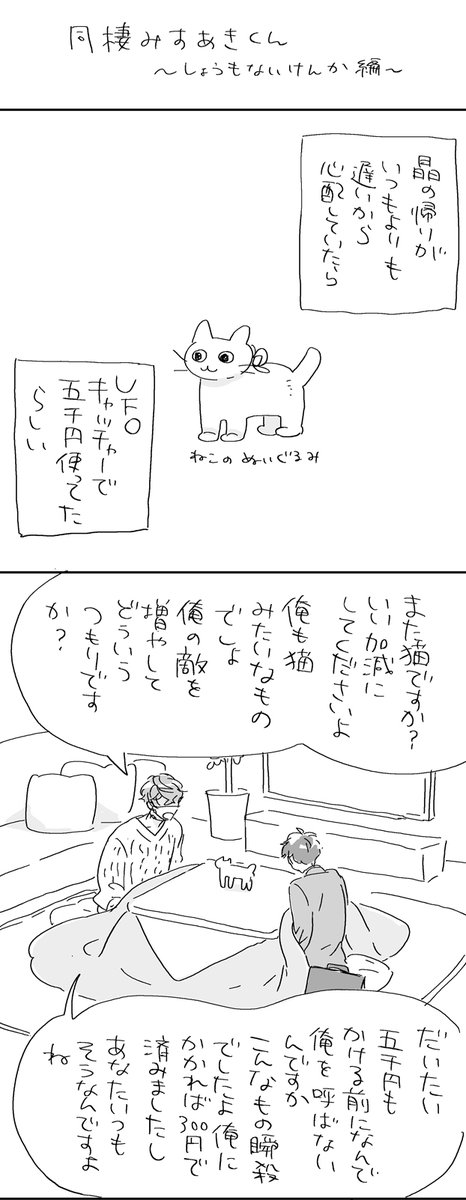 同棲みすあきくん
～しょうもないけんか編～
晶の帰りが
いつもよりも
遅いから
心配していたら
ねこのぬいぐるみ
UFO
キャッチャーで
五千円使ってた
らしい
また猫ですか？
いい加減に
してくださいよ
俺も猫
みたいなもの
でしょ
俺の敵を
増やして
どういう
つもりです
か？
だいたい
五千円も
かける前になんで
俺を呼ばない
んですか
こんなもの瞬殺
でしたよ俺に
かかれば300円で
済みましたし
あなたいつも
そうなんですよ
ね